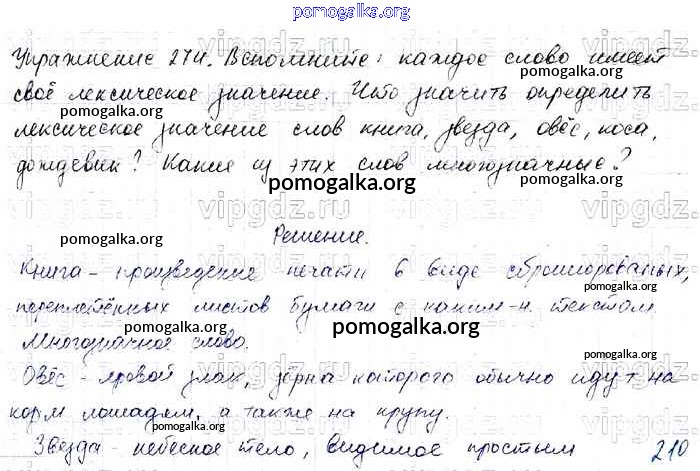 pomogalka.org
Упражнение 274. Вспомните: каждое слово имеет
pomogalka.org
pomogalka.org
своё лексическое значение. Что значить определить
лексическое значение слов книга, звезда, овёс, коса,
дождевик? Какие из этих слов многозначные?
pomogalka.org
vipgdz.ru vipgdz.ru vipgdz.ru
pomogalka.org
Решение.
pomogalka.org
Книга - произведение печати в виде сброшюрованных,
переплетённых листов бумаги с каким-н. текстом.
pomogalka.org
pomogalka.org
Многозначное слово.
pomogalka.org
Овёс - яровой злак, зёрна которого обычно идут на
корм лошадям, а также на крупу.
Звезда - небесное тело, видимое простым
210